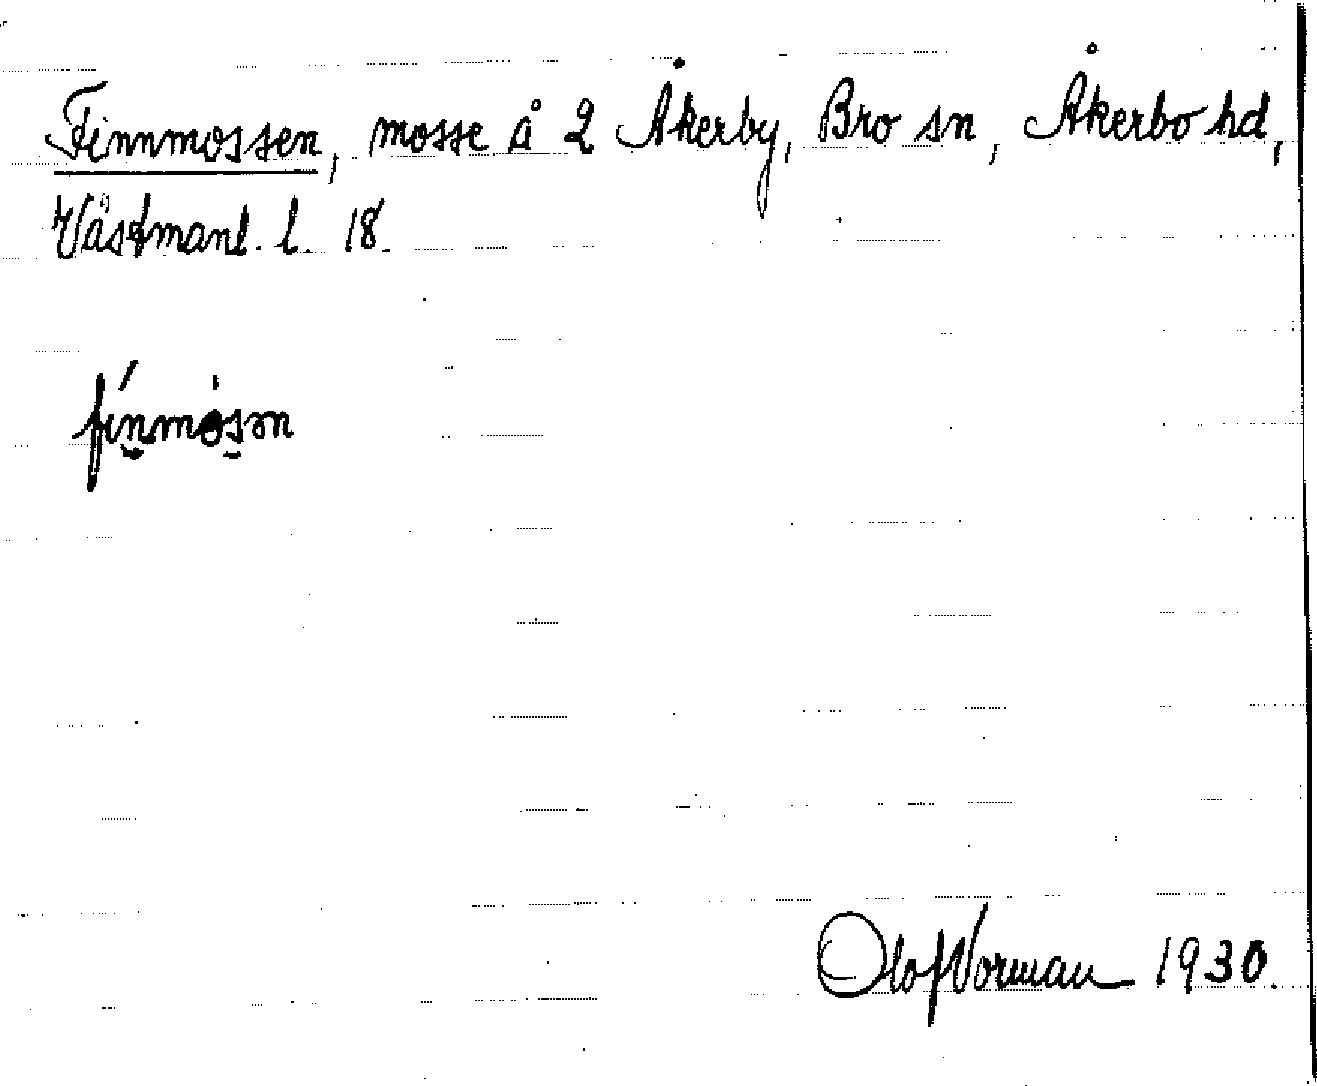 Finnmossen, mosse å 2 Åkerby, Bro sn, Åkerbo hd,
Västmanl. l. 18.
fínmòsən
Olof Vorman 1930.